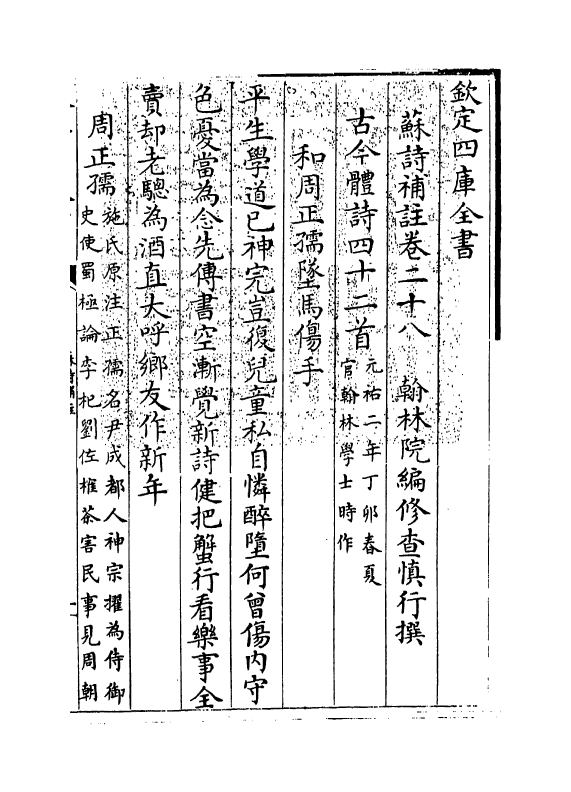 欽定四庫全書
蘇詩補註卷二十八　翰林院編修查慎行撰
古今體詩四十二首元祐二年丁卯春夏
官翰林學士時作
和周正孺墜馬傷手
平生學道已神完豈復兒童私自憐醉墮何曾傷內守
色憂當為念先傳書空漸覺新詩健把蟹行看樂事全
賣却老驄為酒直大呼鄉友作新年
周正孺施氏原注正孺名尹成都人神宗擢為侍御
史使蜀極論李杞劉佐榷茶害民事見周朝